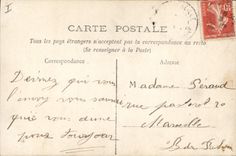 I
CARTE POSTALE
Tous les pays étrangers n'acceptent pas la correspondance au recto
(Se renseigner à la Poste)
Correspondance
Adresse
Devinez qui vous
l'envoy vous
que vous d'une
pour toujours
Madame Péraud
rue 20
Marseille